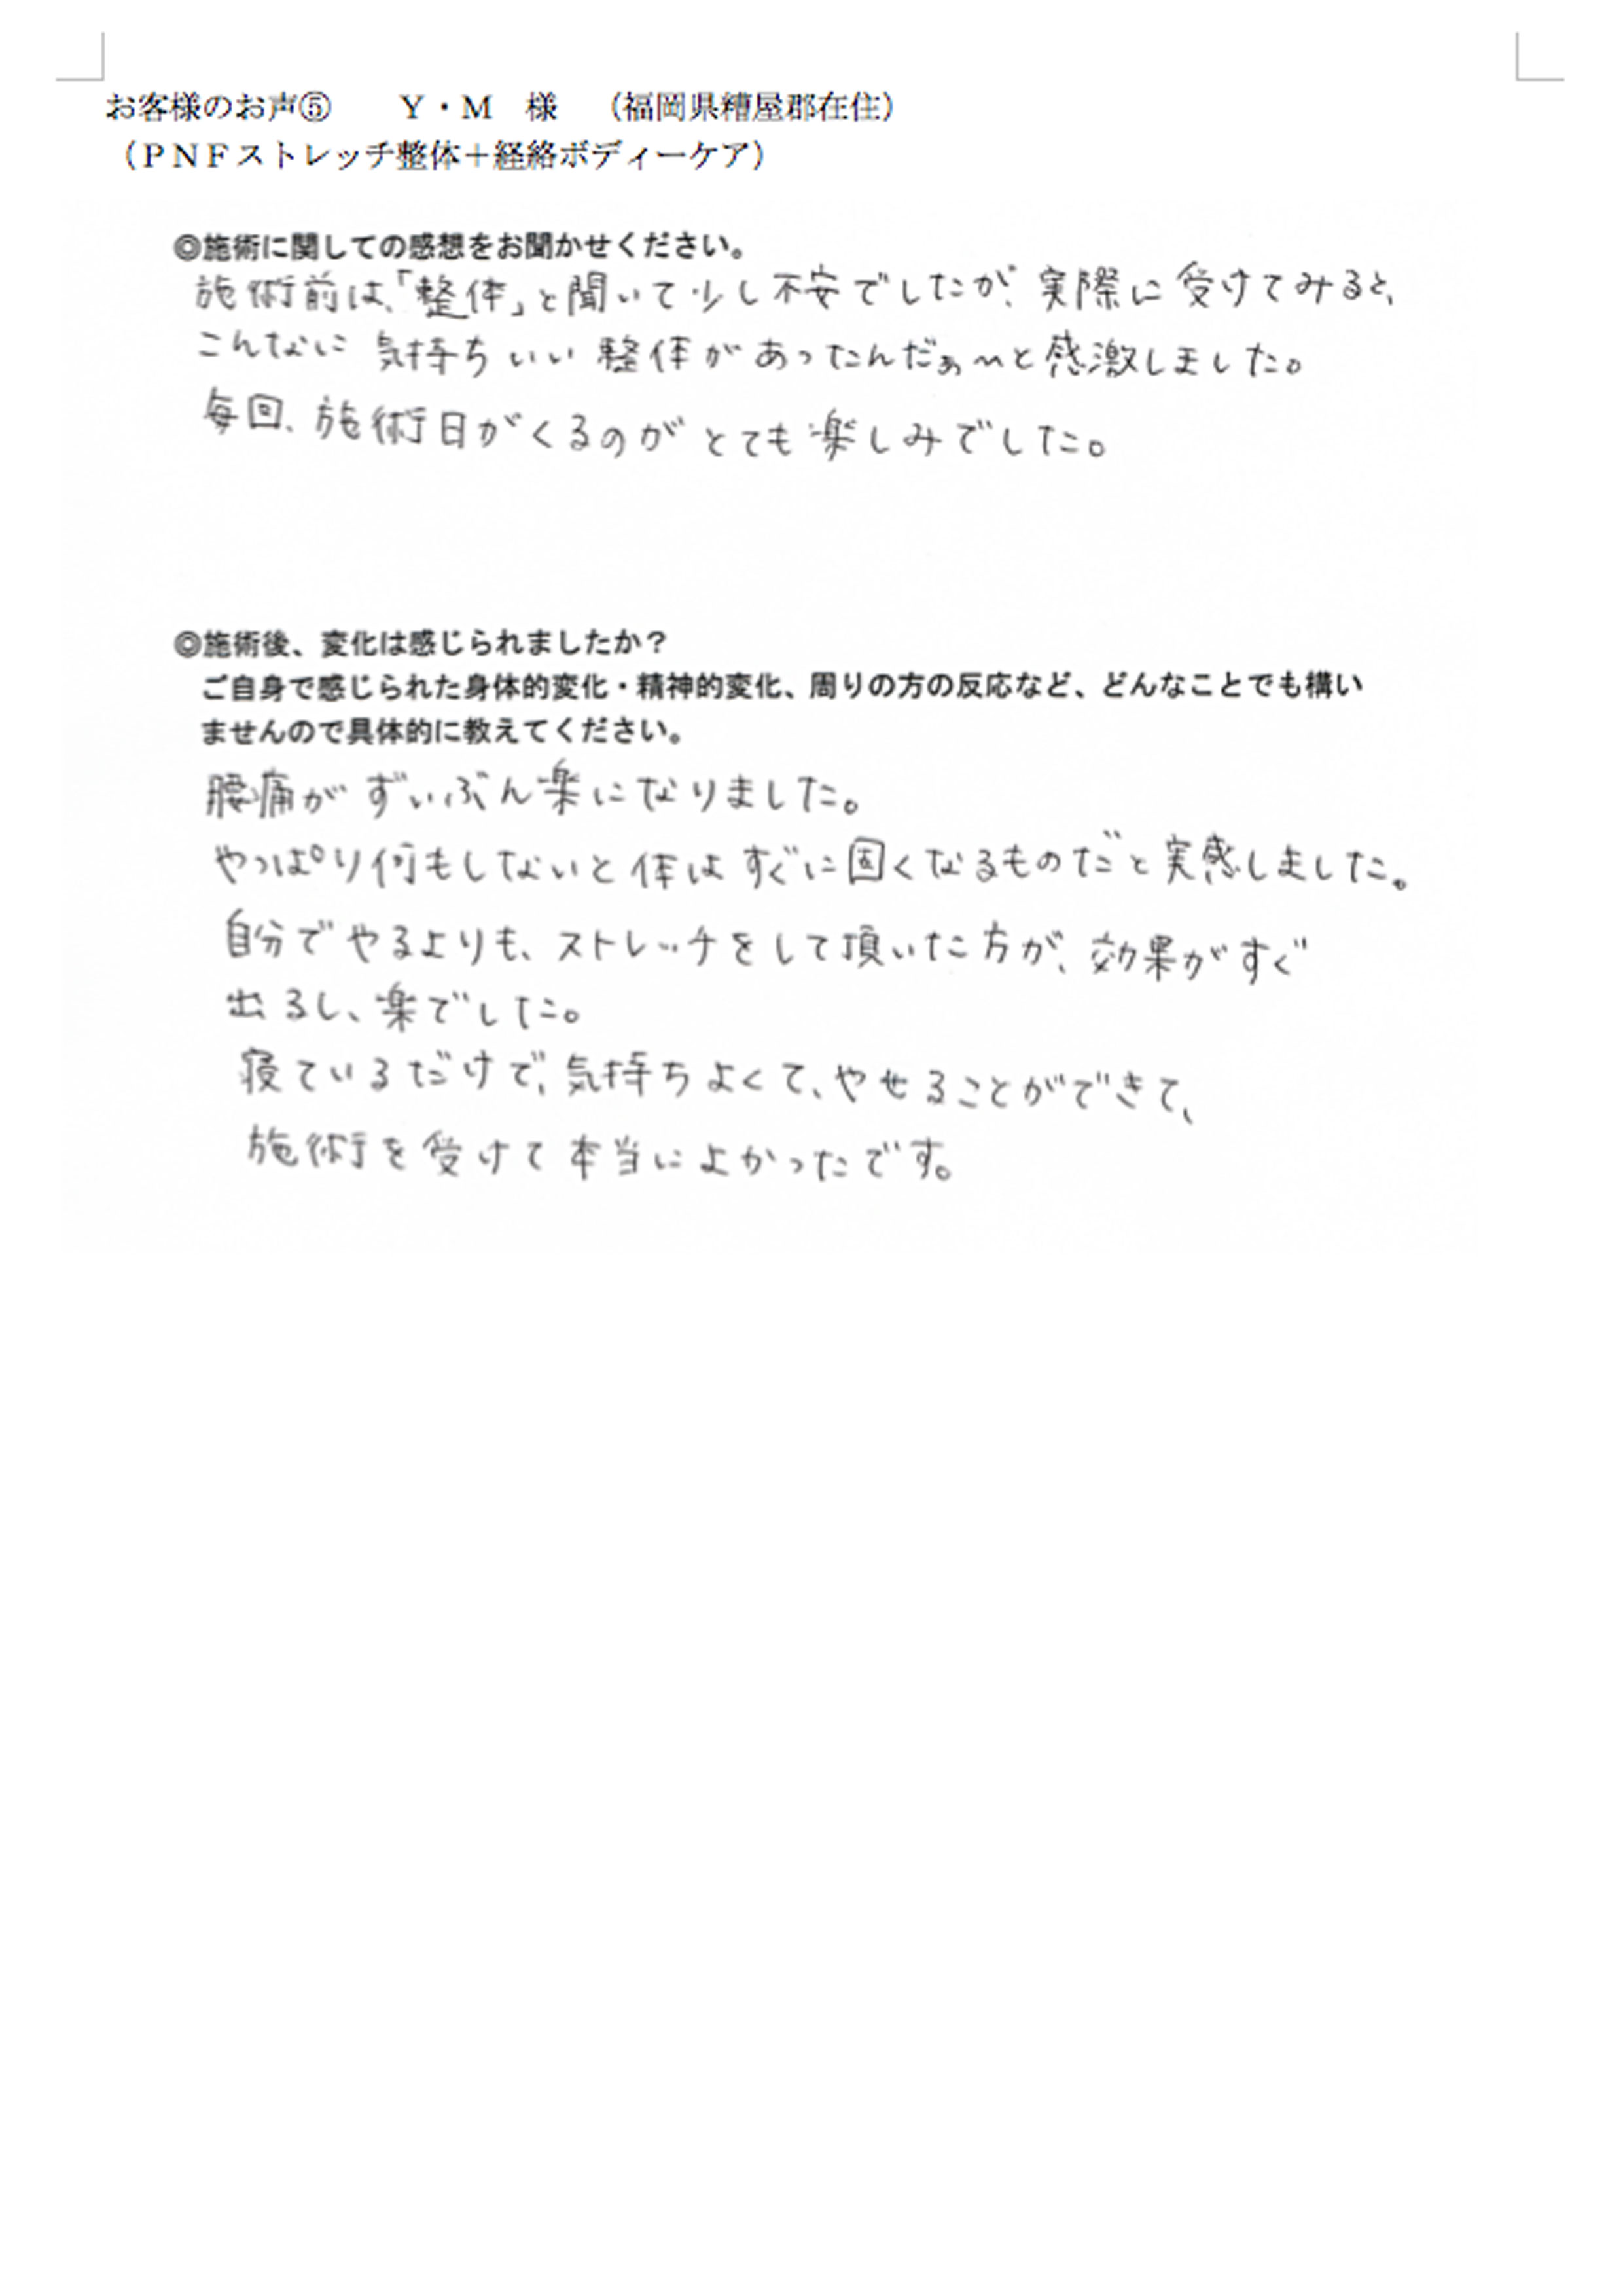 お客様のお声⑤　　Y・M　様　（福岡県糟屋郡在住）
（PNFストレッチ整体＋経絡ボディーケア）
◎施術に関しての感想をお聞かせください。
施術前は、「整体」と聞いて少し不安でしたが、実際に受けてみると、
こんなに気持ちいい整体があったんだぁ〜と感激しました。
毎回、施術日がくるのがとても楽しみでした。
◎施術後、変化は感じられましたか？
ご自身で感じられた身体的変化・精神的変化、周りの方の反応など、どんなことでも構い
ませんので具体的に教えてください。
腰痛がずいぶん楽になりました。
やっぱり何もしないと体はすぐに固くなるものだと実感しました。
自分でやるよりも、ストレッチをして頂いた方が、効果がすぐ
出るし、楽でした。
寝ているだけで、気持ちよくて、やせることができて、
施術を受けて本当によかったです。